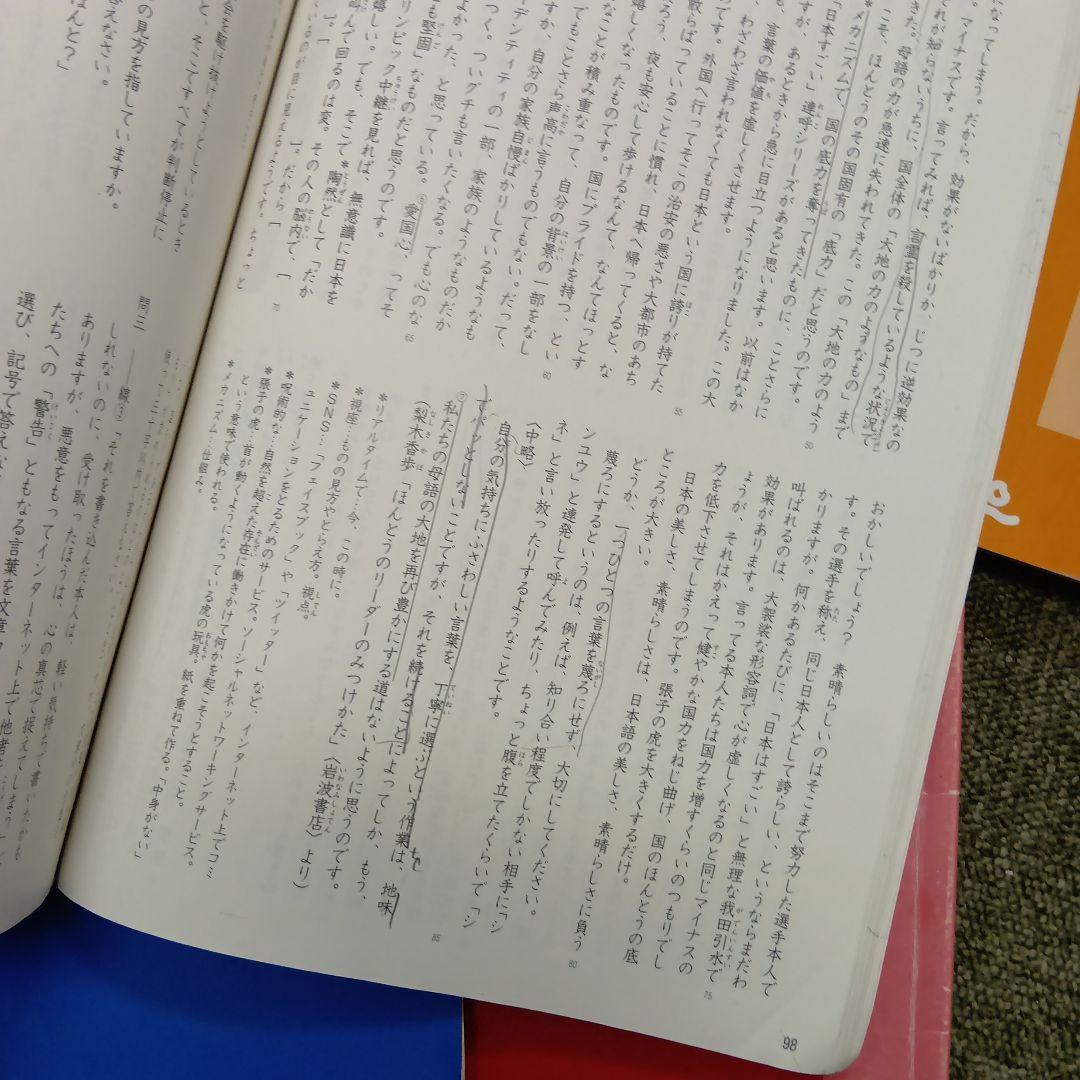 になってしまう。だから、効果がないばかりか、じつに逆効果なの
。マイナスです。言ってみれば、言霊を殺しているような状況で
それが知らないうちに、国全体の「大地の力のようなもの」まで
きた。母語の力が急速に失われてきた。この「大地の力のよう
こそ、ほんとうのその国固有の「底力」だと思うのです。
*メカニズムで、国の底力を奪ってきたものに、ことさらに
「日本すごい」連呼シリーズがあると思います。以前はなか
すが、あるときから急に目立つようになりました。この大
も、言葉の価値を虚しくさせます。
わざわざ言われなくても日本という国に誇りが持てた
す。外国へ行ってそこの治安の悪さや大都市のあち
散らばっていることに慣れ、日本へ帰ってくると、な
ろう、夜も安心して歩けるなんて、なんてほっとす
嬉しくなったものです。国にプライドを持つ、とい
なことが積み重なって、自分の背景の一部をなし
てもことさら声高に言うものでもない。だって、
すか、自分の家族自慢ばかりしているようなも
デンティティの一部、家族のようなものだか
つく。ついグチも言いたくなる。でも心のな
よかった、と思っている。⑥愛国心、ってそ
も堅固」なものだと思うのです。
リンピック中継を見れば、無意識に日本を
嬉しい。でも、そこで*陶然として「だか
叫んで回るのは変。その人の脳内で、[
]。だから[
いるのが目に見えるようです。ちょっと
おかしいでしょう? 素晴らしいのはそこまで努力した選手本人で
す。その選手を称え、同じ日本人として誇らしい、というならまだわ
かりますが。何かあるたびに、「日本はすごい」と無理な我田引水で
叫ばれるのは、大袈裟な形容詞で心が虚しくなるのと同じマイナスの
効果があります。言ってる本人たちは国力を増すくらいのつもりでし
ょうが、それはかえって健やかな国力をねじ曲げ、国のほんとうの底
力を低下させてしまうのです。張子の虎を大きくするだけ。
日本の美しさ、素晴らしさは、日本語の美しさ、素晴らしさに負う
ところが大きい。
どうか、一つひとつの言葉を蔑ろにせず、大切にしてください。
蔑ろにするというのは、例えば、知り合い程度でしかない相手に「シ
ンユウ」と連発して呼んでみたり、ちょっと腹を立てたくらいで「シ
ネ」と言い放ったりするようなことです。
〈中略〉
自分の気持ちにふさわしい言葉を、丁寧に選ぶという作業は、地味
でパッとしないことですが、それを続けることによってしか、もう、
⑦私たちの母語の大地を再び豊かにする道はないように思うのです。
(梨木香歩「ほんとうのリーダーのみつけかた」〈岩波書店〉より)
*リアルタイムで…今、この時に。
*視座…ものの見方やとらえ方。視点。
*SNS…「フェイスブック」や「ツイッター」など、インターネット上でコミ
ュニケーションをとるためのサービス。ソーシャルネットワーキングサービス。
*呪術的な…自然を超えた存在に働きかけて何かを起こそうとすること。
*張子の虎…首が動くようになっている虎の玩具。紙を重ねて作る。「中身がない」
という意味で使われる。
*メカニズム…仕組み。
50
55
60
65
70
75
80
85
98
を駆け抜けようとしているとき、
と、そこですべてが判断停止に
の見方を指していますか。
答えなさい。
ほんと?」
問三
――線③
しれないのに、それを書き込んだ本人は、軽い気持ちで書いたかも
ありますが、受け取ったほうは、心の真芯で捉えてしまう」と
たちへの「警告」ともなる言葉を文章
悪意をもってインターネット上で他者
選び、記号で答えな